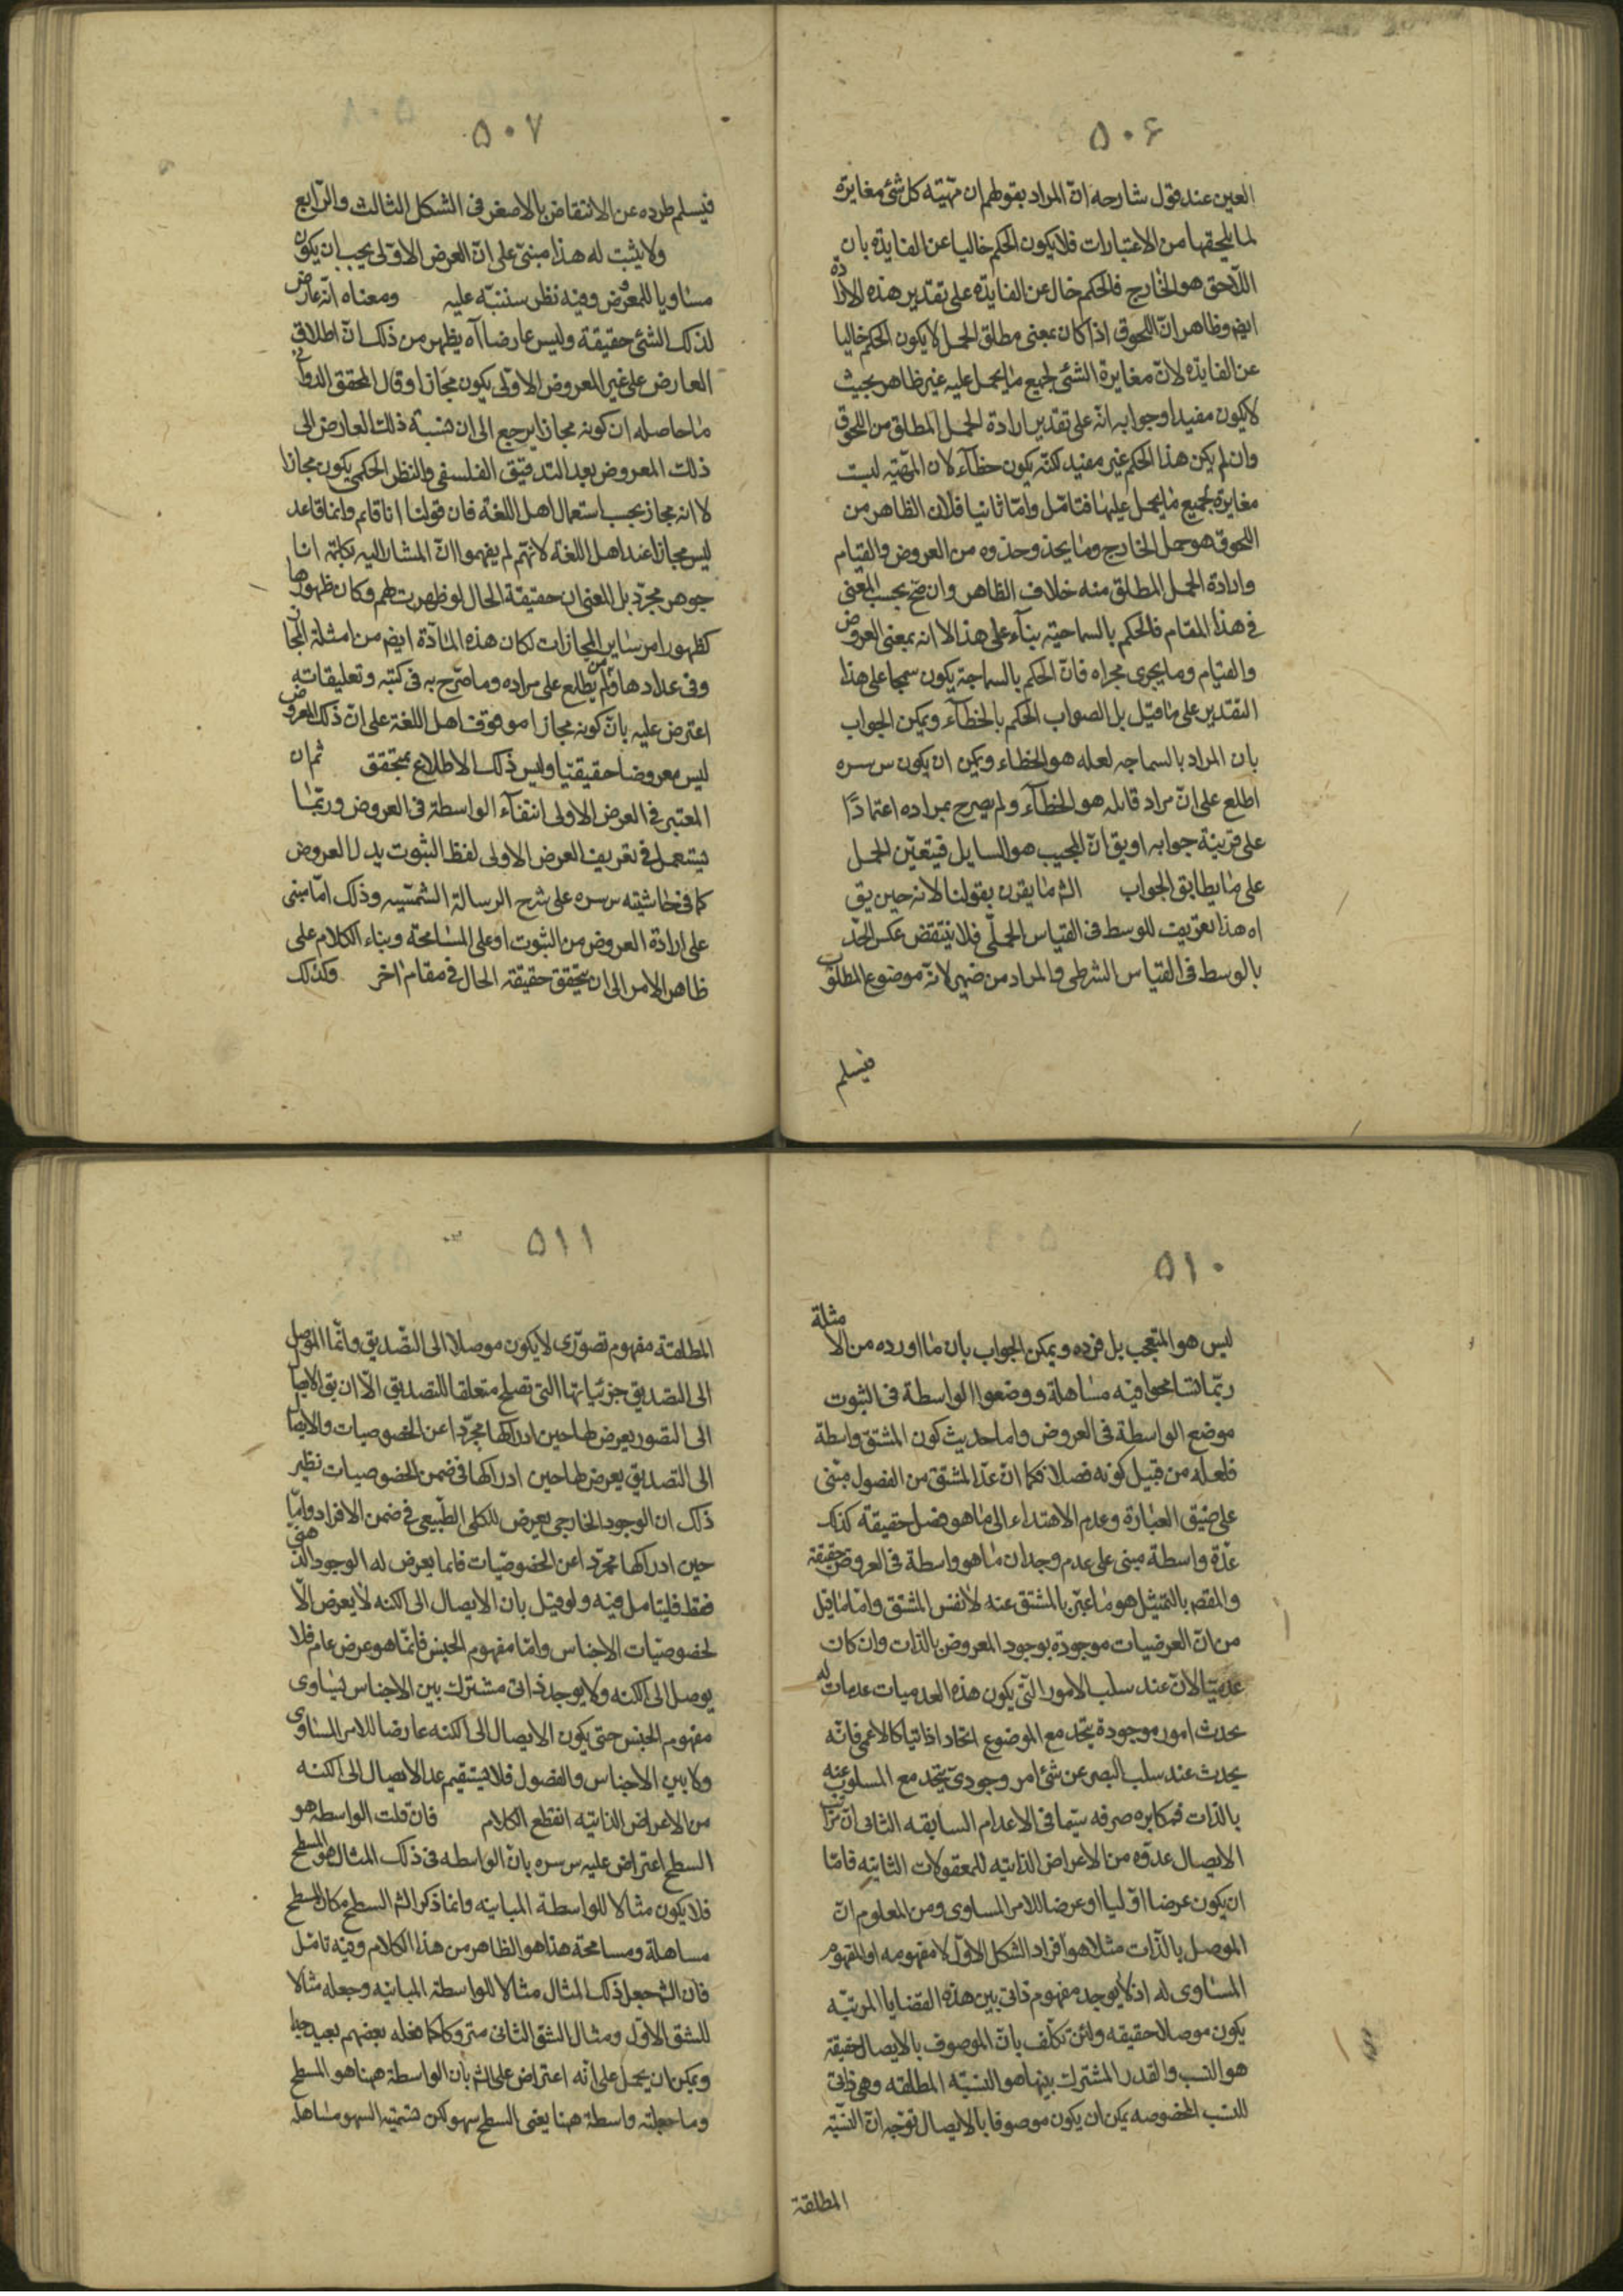 ۵۰۶
العين عند قول شارحه انّ المراد بقولهم ان مهيّته كل شئ مغايرة
لما يلحقها من الاعتبارات فلا يكون الحكم خاليا عن الفايدة بان
اللاحق هو الخارج فالحكم خال عن الفايدة على تقدير هذه الارادة
ايض وظاهر انّ اللحوق اذا كان بمعنى مطلق الحمل لا يكون الحكم خاليا
عن الفايدة لانّ مغايرة الشئ لجميع ما يحمل عليه غير ظاهر بحيث
لا يكون مفيدا وجوابه انّه على تقدير ارادة الحمل المطلق من اللحوق
وان لم يكن هذا الحكم غير مفيد لكنّه يكون خطآء لان المهيّة ليست
مغايرة لجميع ما يحمل عليها فتامّل وامّا ثانيا فلان الظاهر من
اللحوق هو حمل الخارج وما يحذو حذوه من العروض والقيام
وارادة الحمل المطلق منه خلاف الظاهر وان صحّ بحسب المعنى
في هذا المقام فالحكم بالسماجة بنآء على هذا الا انه بمعنى العروض
والقيام وما يجرى مجراه فانّ الحكم بالسماجة يكون سمجا على هذا
التقدير على ما قيل بل الصواب الحكم بالخطآء ويمكن الجواب
بان المراد بالسماجه لعله هو الخطاء ويمكن ان يكون س سره
اطلع على انّ مراد قايله هو الخطآء ولم يصرح بمراده اعتمادًا
على قرينة جوابه او يق انّ المجيب هو السايل فيتعيّن الحمل
على ما يطابق الجواب الشم ما يقرن بقولنا لانه حين يق
اه هذا تعريف للوسط فى القياس الحملّى فلا ينتقض عكس الحدّ
بالوسط فى القياس الشرطى والمراد من ضمير لانّه موضوع المطلوب
فيسلم
۵۰۷
فيسلم طرده عن الانتقاض بالاصغر فى الشكل الثالث والرّابع
ولا يثبت له هذا مبنىّ على انّ العرض الاوّلى يجب ان يكون
مساويا للمعروض وفيه نظر سننبّه عليه ومعناه انّه عارض
لذلك الشئ حقيقة وليس عارضا آه يظهر من ذلك انّ اطلاق
العارض على غير المعروض الاوّلى يكون مجازا وقال المحقق الدوانى
ما حاصله ان كونه مجازا يرجع الى ان نسبة ذلك العارض الى
ذلك المعروض بعد التدقيق الفلسفى والنظر الحكمى يكون مجازا
لا انه مجاز بحسب استعمال اهل اللغة فان قولنا انا قايم وانا قاعد
ليس مجازا عند اهل اللغة لانهم لم يفهموا انّ المشار اليه بكلمة انا
جوهر مجرّد بل المعنى ان حقيقة الحال لو ظهرت لهم وكان ظهورها
كظهور امر ساير المجازات لكان هذه المادّة ايض من امثلة المجاز
وفى عدادها ومن لم يطلع على مراده وما صرّح به فى كتبه وتعليقاته
اعترض عليه بانّ كونه مجازا موقوف اهل اللغة على انّ ذلك المعروض
ليس معروضا حقيقيّا وليس ذلك الاطلاع بمتحقق ثم ان
المعتبر فى العرض الاولى انتفآء الواسطة فى العروض وربّما
يستعمل فى تعريف العرض الاولى لفظ الثبوت بدل العروض
كما فى حاشيته س سره على شرح الرسالة الشمسّيه وذلك امّا مبنى
على ارادة العروض من الثبوت او على المسامحة وبناء الكلام على
ظاهر الامر الى ان يتحقق حقيقة الحال فى مقام اخر وكذلك
۵۱۰
ليس هو المتعجب بل فرده ويمكن الجواب بان ما اورده من الامثلة
ربّما تسامحوا فيه مساهلة ووضعوا الواسطة فى الثبوت
موضع الواسطة فى العروض واما حديث كون المشتق واسطة
فلعله من قبيل كونه فصلا فكما انّ عدّ المشتق من الفصول مبنى
على ضيق العبارة وعدم الاهتداء الى ما هو فصل حقيقة كذلك
عدّه واسطة مبنى على عدم وجدان ما هو واسطة فى العروض حقيقة
والمقصر بالتمثيل هو ما عبّر بالمشتق عنه لا نفس المشتق وامّا ما قيل
من انّ العرضيات موجودة بوجود المعروض بالذات وان كان
عدميّا لانّ عند سلب الامور التّى يكون هذه العدميات عدمات له
يحدث امور موجودة يتحد مع الموضوع اتحادا ذاتيا كالاعمى فانّه
يحدث عند سلب البصر عن شئ امر وجودىّ يتّحد مع المسلوب عنه
بالذات فمكابره صرفه سيّما فى الاعدام السابقه الثانى انّ مراتب
الايصال عدّوه من الاعراض الذاتيه للمعقولات الثانيه فامّا
ان يكون عرضا اوّليا او عرضا للامر المساوى ومن المعلوم انّ
الموصل بالذّات مثلا هو افراد الشكل الاوّل لا مفهومه او المفهوم
المساوى له اذ لا يوجد مفهوم ذاتى بين هذه القضايا المرتبّه
يكون موصلا حقيقه ولئن تكلّف بانّ الموصوف بالايصال حقيقة
هو النسب والقدر المشترك بينها هو النسبّه المطلقه وهى ذاتى
للنسب المخصوصه يمكن ان يكون موصوفا بالايصال توجّه انّ النسبّة
المطلقة
۵۱۱
المطلقة مفهوم تصوّرى لا يكون موصلا الى التصّديق وانّما الموصل
الى التصديق جزئياتها التى تصلح متعلقا للتصديق الّا ان يق الايصال
الى التصور يعرض لها حين ادراكها مجرّدا عن الخصوصيات والايصال
الى التصديق يعرض لها حين ادراكها فى ضمن الخصوصيات نظير
ذلك ان الوجود الخارجى يعرض للكلى الطّبيعى فى ضمن الافراد وامّا
حين ادراكها مجرّدا عن الخصوصيّات فانما يعرض له الوجود الذهنى
فقط فليتامل فيه ولو قيل بان الايصال الى الكنه لا يعرض الّا
لخصوصيّات الاجناس وامّا مفهوم الجنس فانّما هو عرض عام فلا
يوصل الى الكنه ولا يوجد ذاتى مشترك بين الاجناس يساوى
مفهوم الجنس حتى يكون الايصال الى الكنه عارضا للامر المساوى
ولا بين الاجناس والفصول فلا يستقيم عد الايصال الى الكنه
من الاعراض الذاتيه انقطع الكلام فان قلت الواسطه هو
السطح اعتراض عليه س سره بانّ الواسطه فى ذلك المثال هو المسطح
فلا يكون مثالا للواسطة المباينه وانما ذكر الشم السطح مكان المسطح
مساهلة ومسامحة هذا هو الظاهر من هذا الكلام وفيه تامّل
فان الشم جعل ذلك المثال مثالا للواسطة المباينه وجعله مثالا
للشق الاوّل ومثال الشق الثانى متروكا كما فعله بعضهم بعيد جدا
ويمكن ان يحمل على انّه اعتراض على الشم بان الواسطة ههنا هو المسطح
وما جعلته واسطة ههنا يعنى السطح سهو لكن تسميّة السهو مساهلة